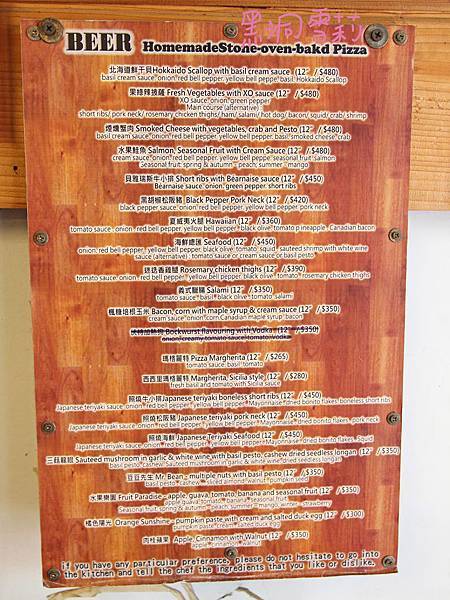 黑炯雪莉
BEER HomemadeStone-oven-bakd Pizza
北海道鮮干貝Hokkaido Scallop with basil cream sauce (12" / $480)
basil cream sauce, onion, red bell pepper, yellow bell pepper, basil, Hokkaido Scallop
Fresh Vegetables with XO sauce (12" / $480)
XO sauce, onion, green pepper
Main course (alternative)
short ribs/ pork neck/ rosemary chicken thighs/ ham/ salami/ hot dog/ bacon/ squid/ crab/ shrimp
煙燻蟹肉 Smoked Cheese with vegetables, crab and Pesto (12" / $480)
basil cream sauce, onion, red bell pepper, yellow bell pepper, basil, smoked cheese, crab
水果鮭魚 Salmon, Seasonal Fruit with Cream Sauce (12" / $480)
cream sauce, onion, red bell pepper, yellow bell peppe, seasonal fruit, salmon
Seasonal fruit: spring & autumn – peach; summer – mango
貝雅瑞斯牛小排 Short ribs with Béarnaise sauce (12" / $450)
Béarnaise sauce, onion, green pepper, short ribs
黑胡椒松阪豬 Black Pepper Pork Neck (12" / $420)
black pepper sauce, onion, red bell pepper, yellow bell pepper, pork neck
夏威夷火腿 Hawaiian (12" / $360)
tomato sauce, onion, red bell pepper, yellow bell pepper, black olive, tomato, pineapple, Canadian bacon
海鮮總匯 Seafood (12" / $450)
onion, red bell pepper, yellow bell pepper, black olive, tomato, squid, sauteed shrimp with white wine
sauce (alternative) : tomato sauce or cream sauce or basil pesto
迷迭香雞腿 Rosemary chicken thighs (12" / $390)
tomato sauce, onion, red bell pepper, yellow bell pepper, black olive, tomato, rosemary chicken thighs
義式臘腸 Salami (12" / $350)
tomato sauce, basil, black olive, tomato, salami
楓糖培根玉米 Bacon, corn with maple syrup & cream sauce (12" / $350)
cream sauce, onion, corn, Canadian maple syrup, bacon
Bockwurst flavouring with Vodka (12" / $350)
onion, creamy tomato sauce, tomato, vodka
瑪格麗特 Pizza Margherita (12" / $265)
tomato sauce, basil, tomato
西西里瑪格麗特 Margherita, Sicilia style (12" / $280)
fresh basil and tomato with Sicilia sauce
照燒牛小排Japanese teriyaki boneless short ribs (12" / $450)
Japanese teriyaki sauce, onion, red bell pepper, yellow bell pepper, Mayonnaise, dried bonito flakes, boneless short ribs
照燒松阪豬 Japanese teriyaki pork neck (12" / $450)
Japanese teriyaki sauce, onion, red bell pepper, yellow bell pepper, Mayonnaise, dried bonito flakes, pork neck
照燒海鮮 Japanese Teriyaki Seafood (12" / $450)
Japanese teriyaki sauce, onion, red bell pepper, yellow bell pepper, Mayonnaise, dried bonito flakes, Squid
Sauteed mushroom in garlic & white wine with basil pesto, cashew dried seedless longan (12" / $350)
basil pesto, cashew, Sauteed mushroom in garlic & white wine, dried seedless longan
豆豆先生 Mr. Bean - multiple nuts with basil pesto (12" / $350)
basil pesto, cashew, sliced almond, walnut, pumpkin seed
水果樂園 Fruit Paradise – apple, guava, tomato, banana and seasonal fruit (12" / $350)
apple, guava, tomato, banana, seasonal fruit
Seasonal fruit: spring & autumn – peach; summer – mango; winter – strawberry
橘色陽光 Orange Sunshine – pumpkin paste with cream and salted duck egg (12" / $300)
pumpkin paste, cream, salted duck egg
肉桂蘋果 Apple, Cinnamon with Walnut (12" / 350)
apple, cinnamon, walnut
if you have any particular preference, please do not hesitate to go into
the kitchen and tell the chef the ingredients that you like or dislike.